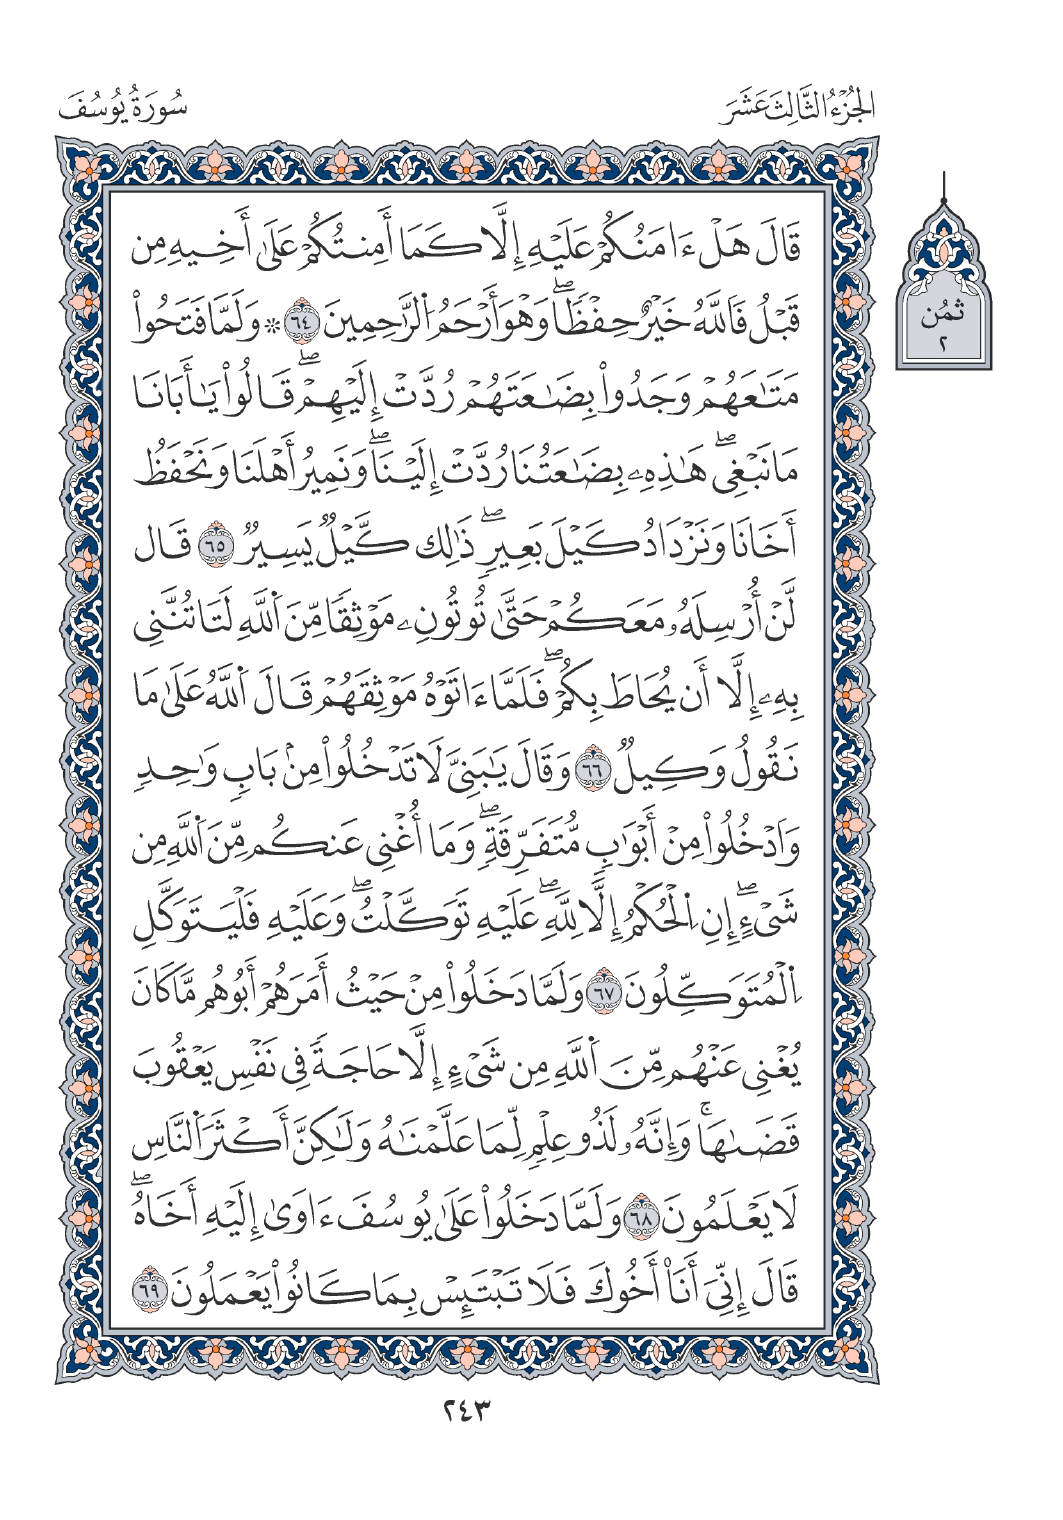 الجُزْءُ الثَّالِثَ عَشَرَ
سُورَةُ يُوسُفَ
ثُمُن
٢
قَالَ هَلۡ ءَامَنُكُمۡ عَلَيۡهِ إِلَّا كَمَآ أَمِنتُكُمۡ عَلَىٰٓ أَخِيهِ مِن
قَبۡلُ فَٱللَّهُ خَيۡرٌ حِفۡظٗاۖ وَهۡوَ أَرۡحَمُ ٱلرَّٰحِمِينَ ٦٤ ۞ وَلَمَّا فَتَحُواْ
مَتَٰعَهُمۡ وَجَدُواْ بِضَٰعَتَهُمۡ رُدَّتۡ إِلَيۡهِمۡۖ قَالُواْ يَٰٓأَبَانَا
مَا نَبۡغِيۖ هَٰذِهِۦ بِضَٰعَتُنَا رُدَّتۡ إِلَيۡنَاۖ وَنَمِيرُ أَهۡلَنَا وَنَحۡفَظُ
أَخَانَا وَنَزۡدَادُ كَيۡلَ بَعِيرٖۖ ذَٰلِكَ كَيۡلٞ يَسِيرٞ ٦٥ قَالَ
لَنۡ أُرۡسِلَهُۥ مَعَكُمۡ حَتَّىٰ تُؤۡتُونِۦ مَوۡثِقٗا مِّنَ ٱللَّهِ لَتَأۡتُنَّنِي
بِهِۦٓ إِلَّآ أَن يُحَاطَ بِكُمۡۖ فَلَمَّآ ءَاتَوۡهُ مَوۡثِقَهُمۡ قَالَ ٱللَّهُ عَلَىٰ مَا
نَقُولُ وَكِيلٞ ٦٦ وَقَالَ يَٰبَنِيَّ لَا تَدۡخُلُواْ مِنۢ بَابٖ وَٰحِدٖ
وَٱدۡخُلُواْ مِنۡ أَبۡوَٰبٖ مُّتَفَرِّقَةٖۖ وَمَآ أُغۡنِي عَنكُم مِّنَ ٱللَّهِ مِن
شَيۡءٍۖ إِنِ ٱلۡحُكۡمُ إِلَّا لِلَّهِۖ عَلَيۡهِ تَوَكَّلۡتُۖ وَعَلَيۡهِ فَلۡيَتَوَكَّلِ
ٱلۡمُتَوَكِّلُونَ ٦٧ وَلَمَّا دَخَلُواْ مِنۡ حَيۡثُ أَمَرَهُمۡ أَبُوهُم مَّا كَانَ
يُغۡنِي عَنۡهُم مِّنَ ٱللَّهِ مِن شَيۡءٍ إِلَّا حَاجَةٗ فِي نَفۡسِ يَعۡقُوبَ
قَضَىٰهَاۚ وَإِنَّهُۥ لَذُو عِلۡمٖ لِّمَا عَلَّمۡنَٰهُ وَلَٰكِنَّ أَكۡثَرَ ٱلنَّاسِ
لَا يَعۡلَمُونَ ٦٨ وَلَمَّا دَخَلُواْ عَلَىٰ يُوسُفَ ءَاوَىٰٓ إِلَيۡهِ أَخَاهُۖ
قَالَ إِنِّيَ أَنَا۠ أَخُوكَ فَلَا تَبۡتَئِسۡ بِمَا كَانُواْ يَعۡمَلُونَ ٦٩
٢٤٣